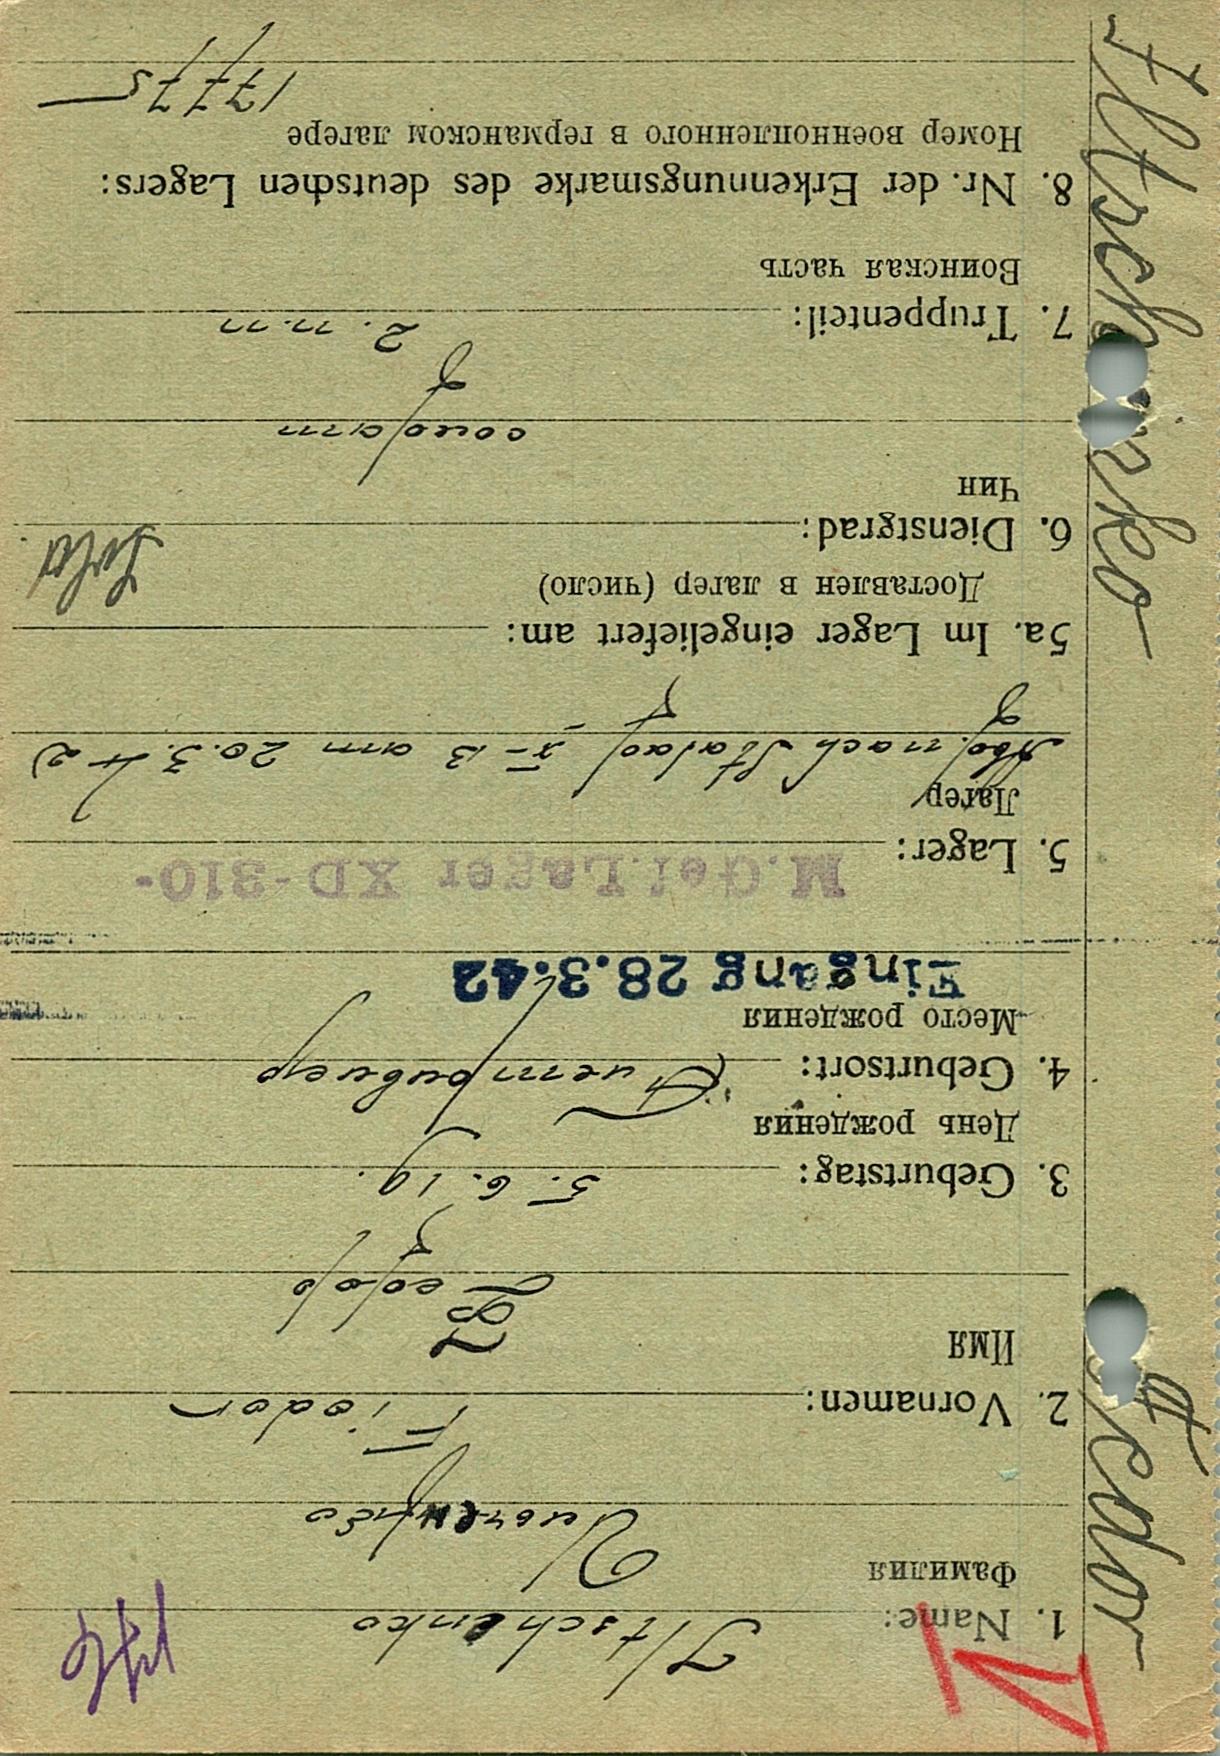 1. Name: Iltschenko
Фамилия
Ильченко
2. Vornamen: Fiodor
Имя
Федор
3. Geburtstag: 5. 6. 19.
День рождения
4. Geburtsort:
Место рождения
Eingang 28.3.42
5. Lager: M.Gef.Lager XD-310-
Лагерь
nach Stalag X-B am 20.3.42
5a. Im Lager eingeliefert am:
Доставлен в лагер (число)
6. Dienstgrad:
Чин
солдат
7. Truppenteil: 2. п.п
Воинская часть
8. Nr. der Erkennungsmarke des deutschen Lagers:
Номер военнопленного в германском лагере
17775
Iltschenko
Fedor
V